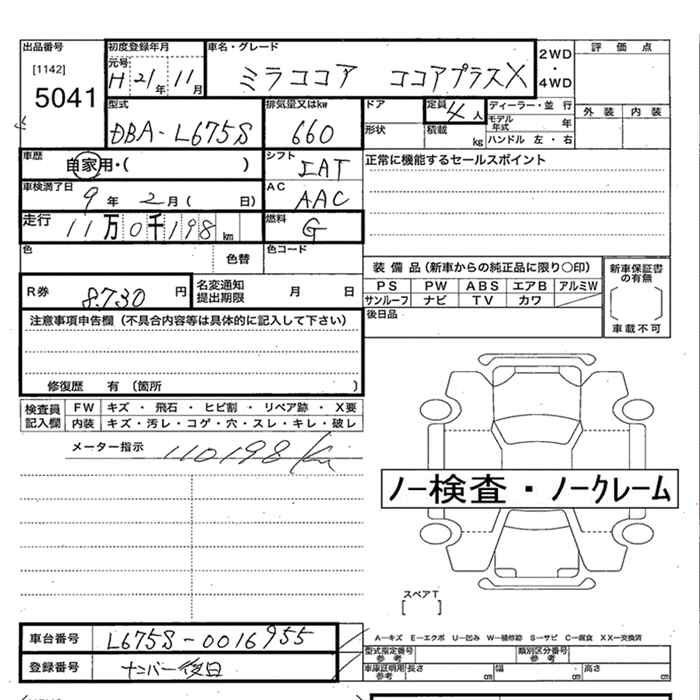 出品番号 初度登録年月 車名・グレード 2WD ・ 4WD 評価点
[1142] 元号 H 21 年 11 月 ミラココア ココアプラスX
5041
型式 排気量又はkw ドア 定員 4人 ディーラー・並 行 外装 内装
DBA-L675S 660 形状 積載 kg モデル年式 年
ハンドル 左・右
車歴 自家用・( ) シフト IAT 正常に機能するセールスポイント
車検満了日 9年 2月( 日) AC AAC
走行 11万0千198km 燃料 G
色 色替 色コード
装備品(新車からの純正品に限り○印) 新車保証書の有無
PS PW ABS エアB アルミW
サンルーフ ナビ TV カワ
後日品 車載不可
R券 8,730円 名変通知提出期限 月 日
注意事項申告欄(不具合内容等は具体的に記入して下さい)
修復歴 有〔箇所 〕
検査員記入欄 FW キズ・飛石・ヒビ割・リペア跡・X要
内装 キズ・汚レ・コゲ・穴・スレ・キレ・破レ
メーター指示 110198km
ノー検査・ノークレーム
スペアT
[ ]
車台番号 L675S-0016955
A-キズ E-エクボ U-凹み W-補修跡 S-サビ C-腐食 XX-交換済
登録番号 ナンバー後日
型式指定番号 参考 類別区分番号 参考
車庫証明用 参考 長さ cm 幅 cm 高さ cm